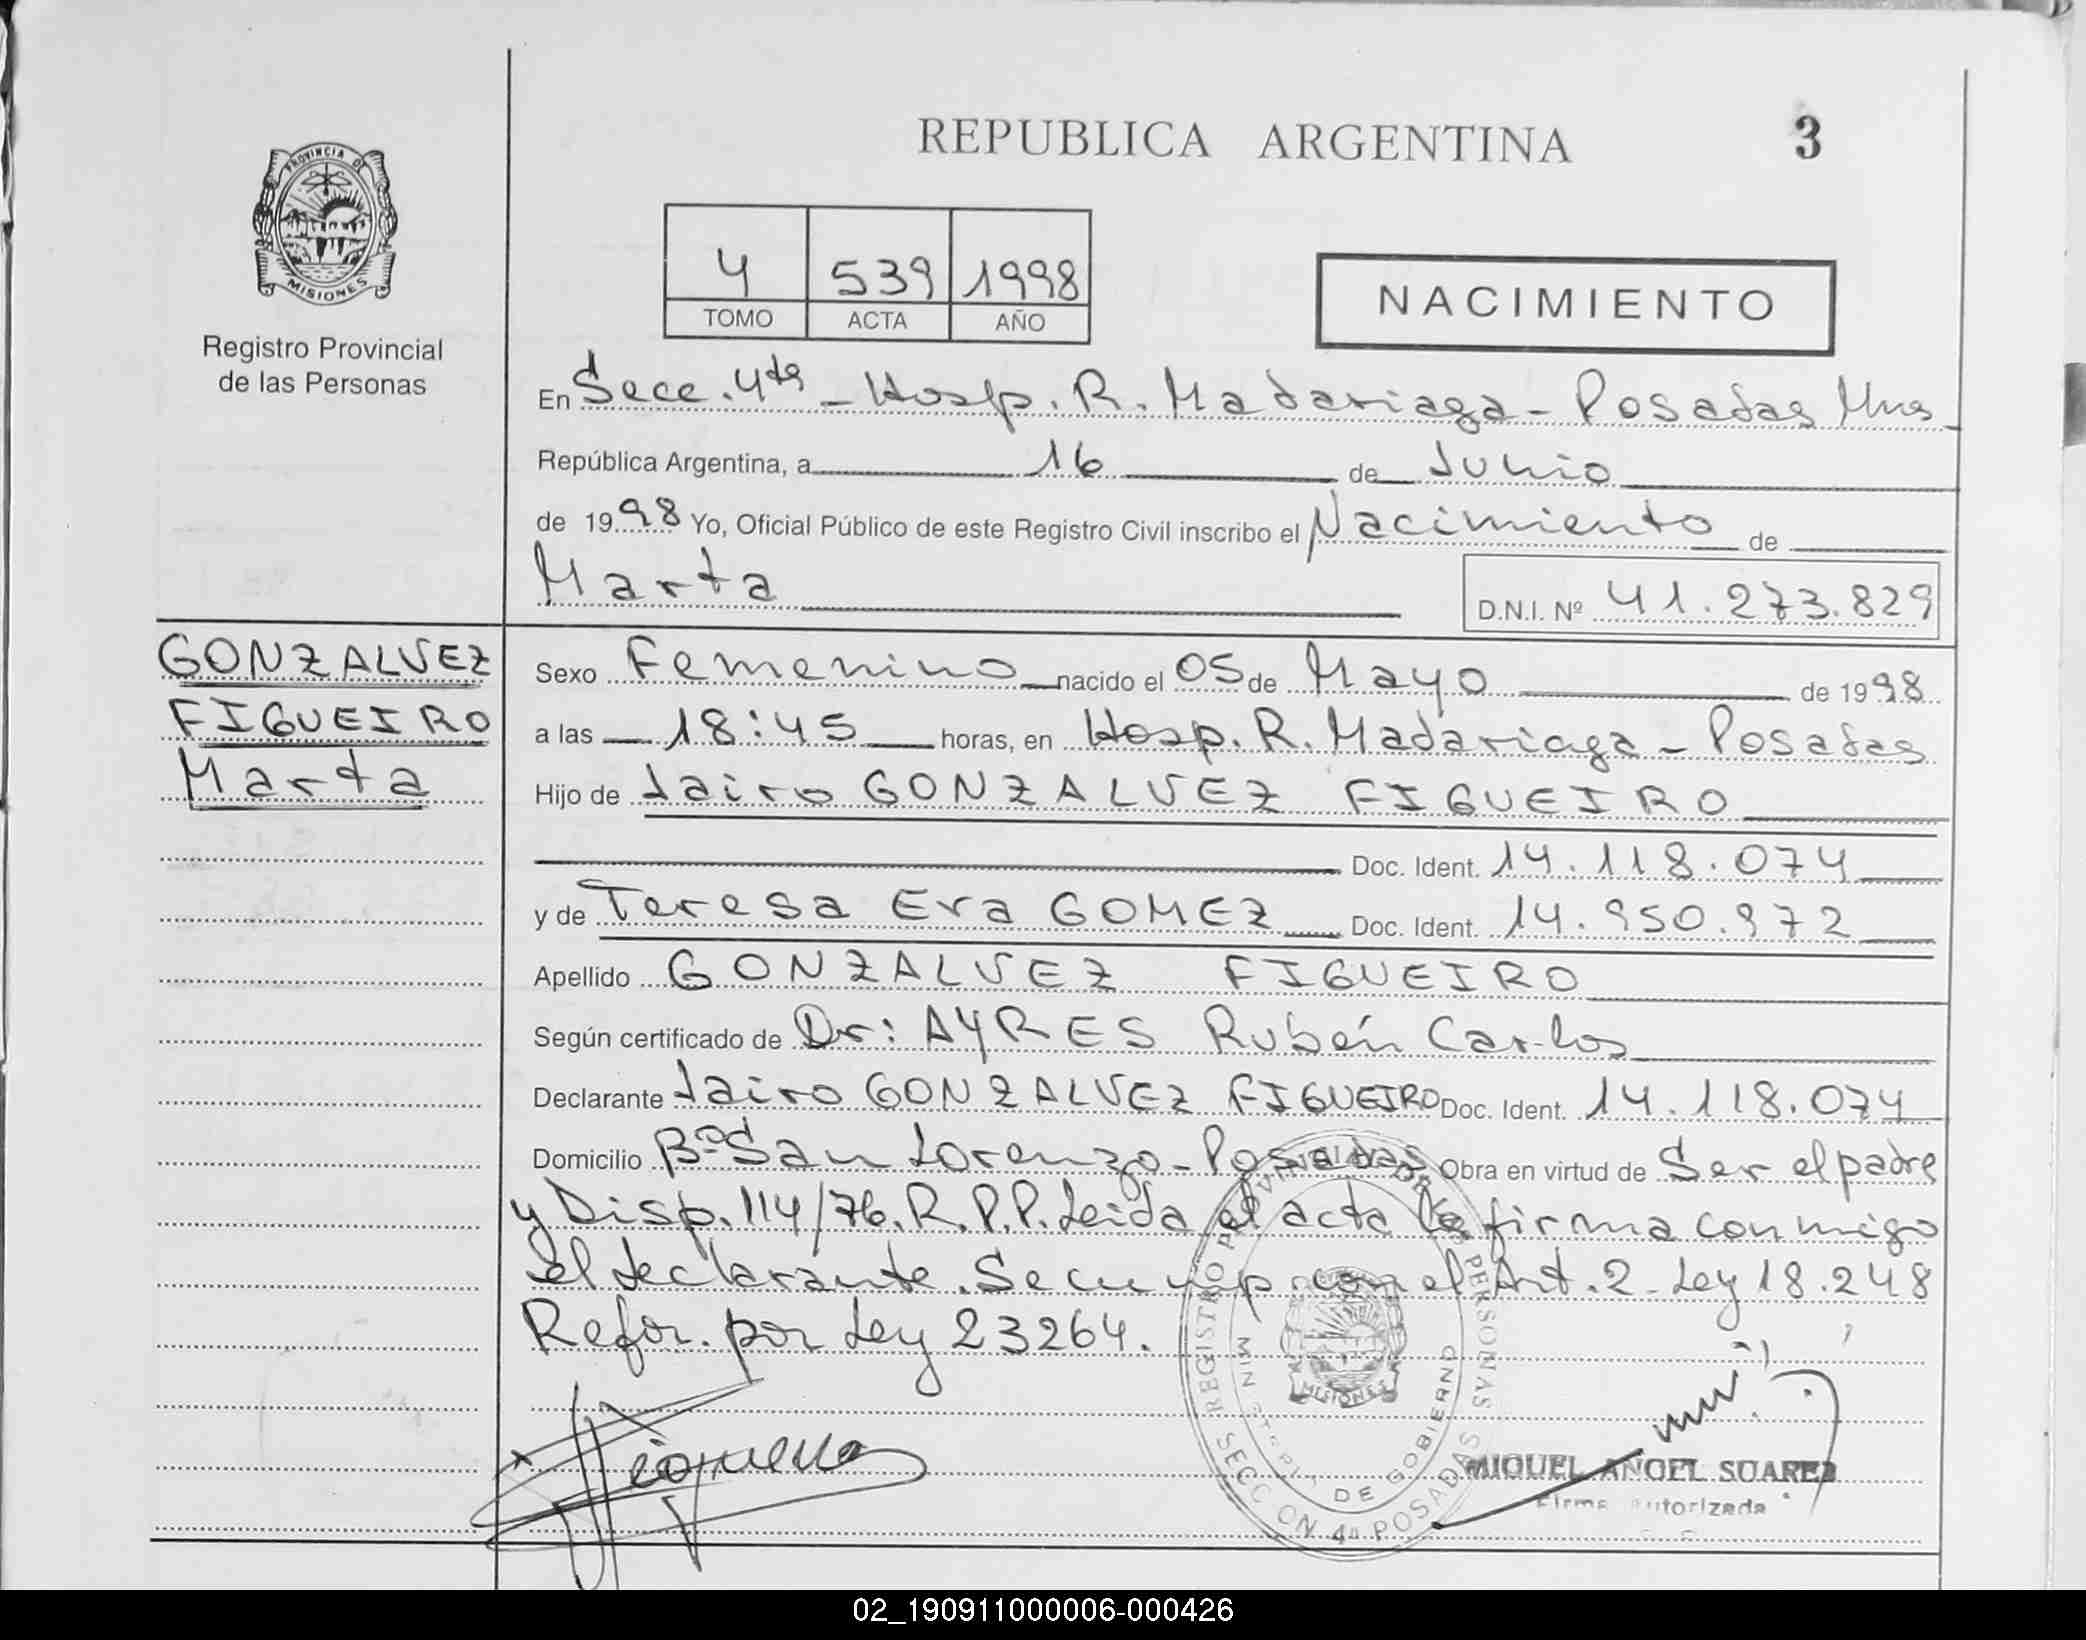 REPUBLICA ARGENTINA 3
PROVINCIA DE
MISIONES
Registro Provincial
de las Personas
4 539 1998
TOMO ACTA AÑO
NACIMIENTO
En Secc. 4ta - Hosp. R. Madariaga - Posadas Mnes
República Argentina, a 16 de Junio
de 1998 Yo, Oficial Público de este Registro Civil inscribo el Nacimiento de
Marta
D.N.I. Nº 41.273.829
GONZALVEZ
FIGUEIRO
Marta
Sexo Femenino nacido el 05 de Mayo de 1998
a las 18:45 horas, en Hosp. R. Madariaga - Posadas
Hijo de Jairo GONZALVEZ FIGUEIRO
Doc. Ident. 14.118.074
y de Teresa Eva GOMEZ Doc. Ident. 14.950.972
Apellido GONZALVEZ FIGUEIRO
Según certificado de Dr: AYRES Rubén Carlos
Declarante Jairo GONZALVEZ FIGUEIRO Doc. Ident. 14.118.074
Domicilio Bº San Lorenzo - Posadas Obra en virtud de Ser el padre
y Disp. 114/76. R.P.P. Leida el acta la firma conmigo
el declarante. Se cump. con el Art. 2 - Ley 18.248
Refor. por Ley 23264.
REGISTRO PROVINCIAL DE LAS PERSONAS
MINISTERIO DE GOBIERNO
MISIONES
SECCION 4a POSADAS
MIGUEL ANGEL SUAREZ
Firma Autorizada
02_190911000006-000426